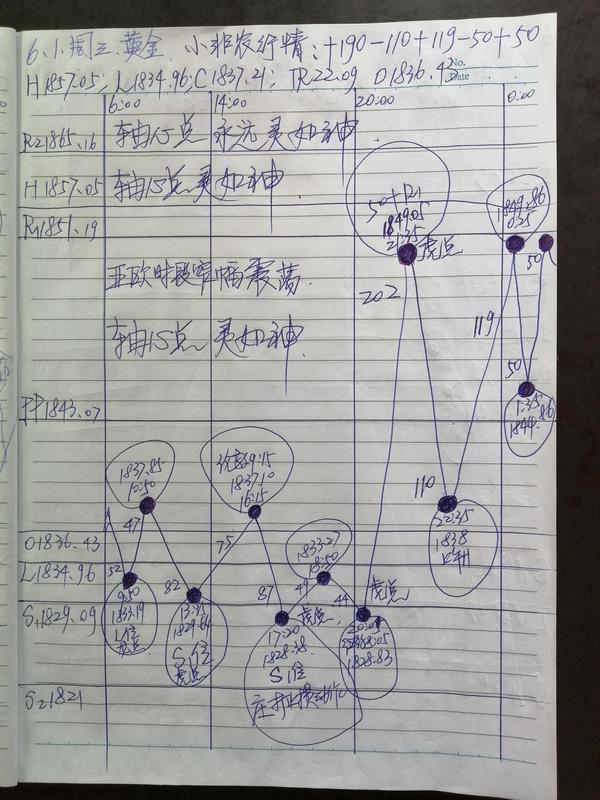 6.1.周三.黄金. 小非农行情:+190-110+119-50+50
H1857.05; L1834.96; C1837.21; TR22.09 O1836.43
No.
Date
6:00 14:00 20:00 0:00
R21865.16
轴15点 永远灵如神
H1857.05
轴15点灵如神.
R11851.19
50+R1
1849.05
21:35
虎点
1849.86
0:25
50
亚欧时段窄幅震荡.
202
119
轴15点 灵如神.
50
PP1843.07
1:35
1844.86
1837.85
10:50
1837.10
16:15
110
22:35
1838
47
75
O1836.43
1833.27
18:50
L1834.96
52
82
87
49
44
虎点
9:50
1833.19
L位
虎点
13:35
1829.64
S1位
虎点
S11829.09
虎点.
17:20
1828.38
S1位
1828.83
S21821